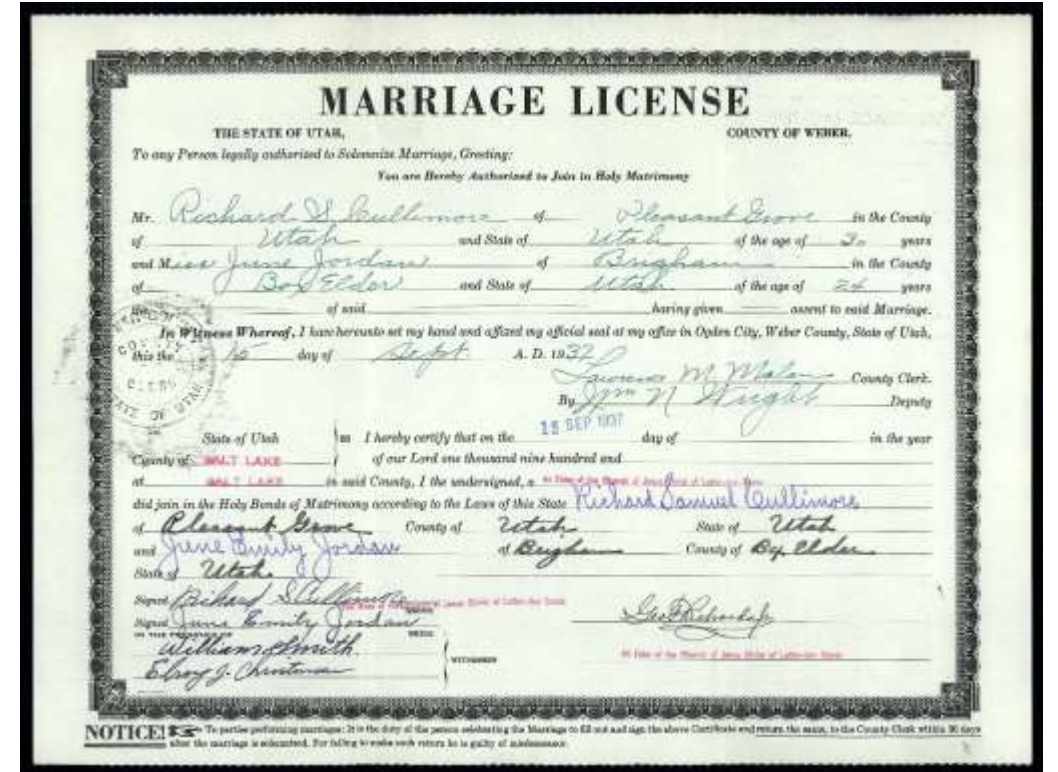 MARRIAGE LICENSE
THE STATE OF UTAH, COUNTY OF WEBER.
To any Person legally authorized to Solemnize Marriage, Greeting:
You are Hereby Authorized to Join in Holy Matrimony
Mr. Richard S. Cullimore of Pleasant Grove in the County
of Utah and State of Utah of the age of 30 years
and Miss June Jordan of Brigham in the County
of Box Elder and State of Utah of the age of 24 years
of said having given assent to said Marriage.
In Witness Whereof, I have hereunto set my hand and affixed my official seal at my office in Ogden City, Weber County, State of Utah,
this the 15 day of Sept. A. D. 1937
Lawrence M. Malan County Clerk.
By Wm N Wright Deputy
State of Utah ss I hereby certify that on the 15 SEP 1937 day of in the year
County of SALT LAKE of our Lord one thousand nine hundred and
at SALT LAKE in said County, I the undersigned, a An Elder of the Church of Jesus Christ of Latter-day Saints
did join in the Holy Bonds of Matrimony according to the Laws of this State Richard Samuel Cullimore
of Pleasant Grove County of Utah State of Utah
and June Emily Jordan of Brigham County of Box Elder
State of Utah
Signed Richard S Cullimore
Signed June Emily Jordan Geo F Richards Jr
IN THE PRESENCE OF BRIDE
William Smith An Elder of the Church of Jesus Christ of Latter-day Saints
Elroy J. Christensen WITNESSES
NOTICE! To parties performing marriage: It is the duty of the person celebrating the Marriage to fill out and sign the above Certificate and return the same, to the County Clerk within 30 days
after the marriage is solemnized. For failing to make such return he is guilty of misdemeanor.